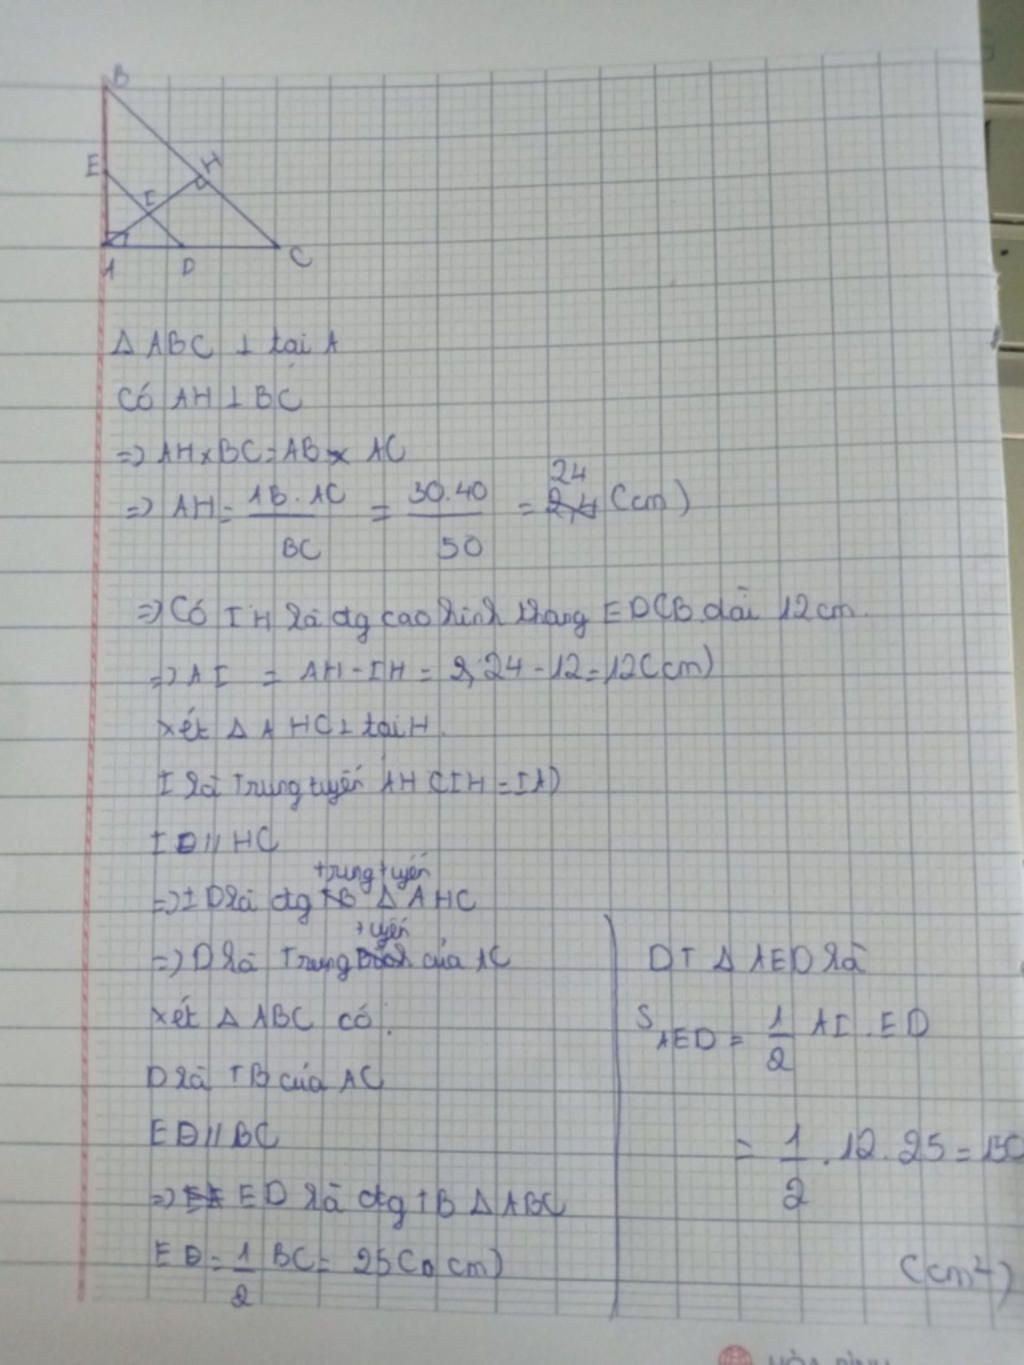 B
E
H
I
A
D
C
Δ ABC ⊥ tại A
Có AH ⊥ BC
=> AH x BC = AB x AC
=> AH = AB . AC / BC = 30.40 / 50 = 24 (cm)
=> Có IH là đg cao hình thang EDCB dài 12 cm.
=> AI = AH - IH = 24 - 12 = 12 (cm)
Xét Δ AHC ⊥ tại H.
I là Trung tuyến AH (IH = IA)
ID // HC
=> ID là đg trung tuyến Δ AHC
=> D là Trung tuyến của AC
Xét Δ ABC có:
D là TB của AC
ED // BC
=> ED là đg TB Δ ABC
ED = 1/2 BC = 25 (cm)
DT Δ AED là
S AED = 1/2 AI . ED
= 1/2 . 12 . 25 =
(cm²)